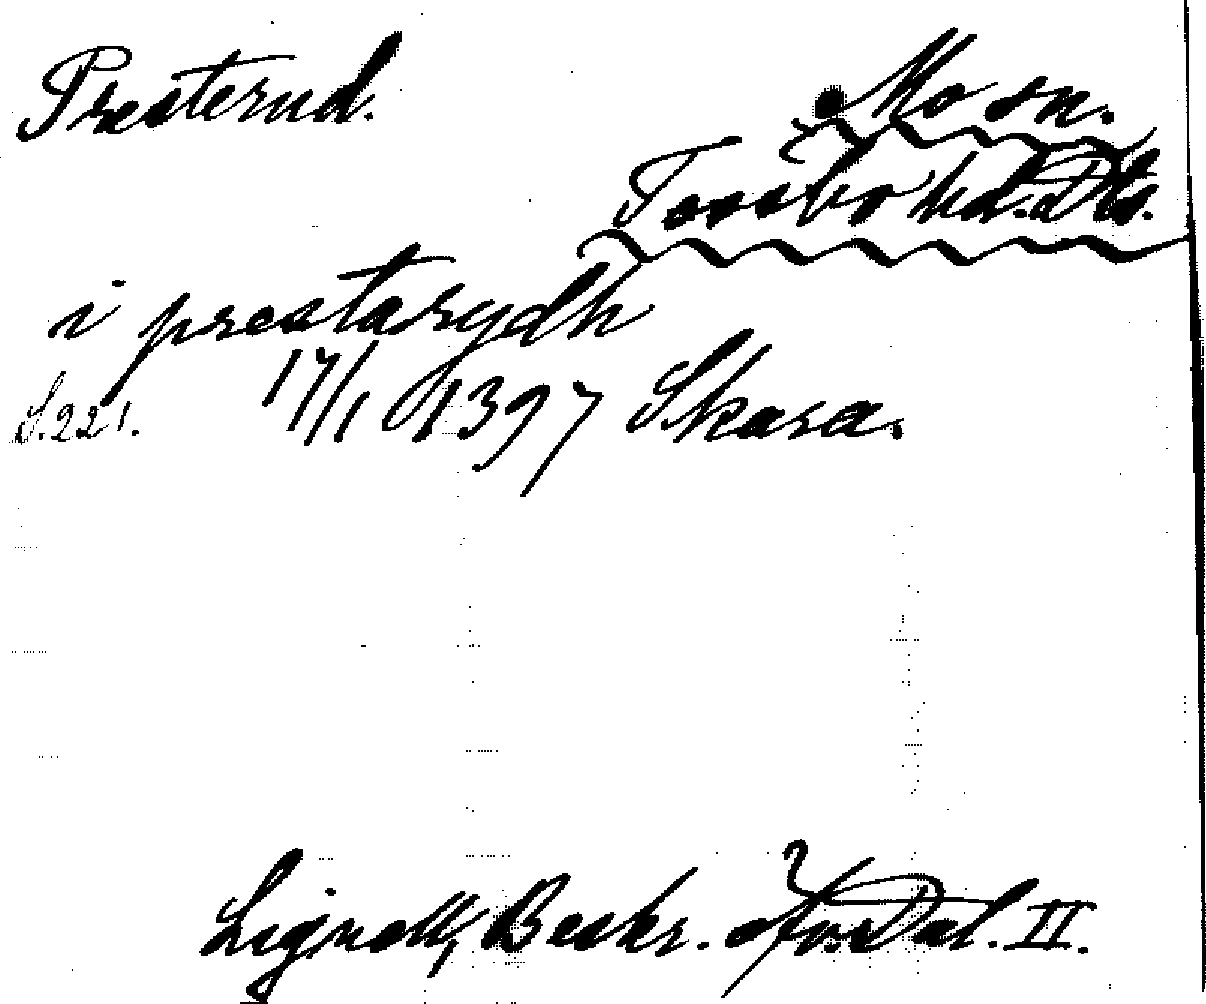 Presterud.
Mo sn.
Tossbo hd. Dls.
i prestarydh
S. 221. 17/1 1397 Skara.
Lignell, Beskr. öfv. Dal. II.